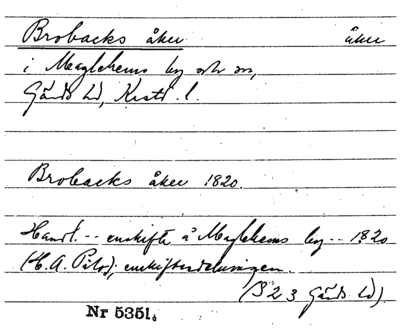 Brobacks åker åker
i Maglehems by och sn,
Gärds hd, Krist. l.
Brobacks åker 1820.
Handl. -- enskifte å Maglehems by -- 1820
(H. A. ), enskiftesdelningen.
(S 23 Gärds hd).
Nr 5351.